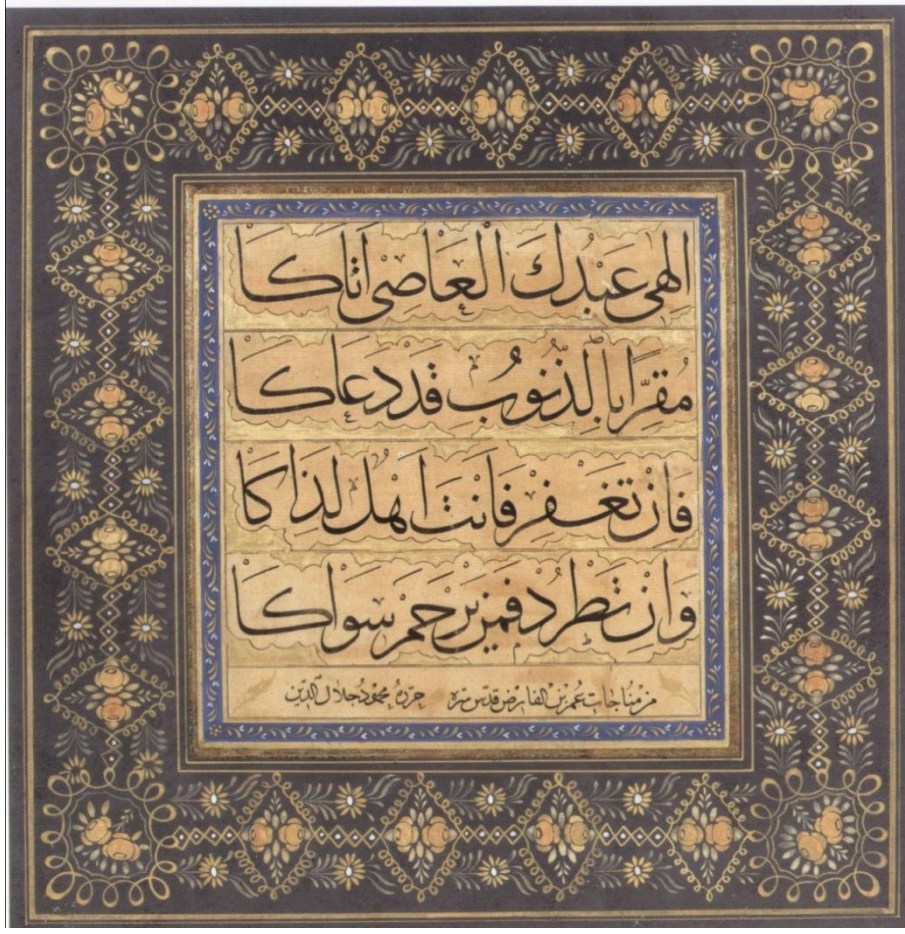 الهي عَبْدُكَ الْعَاصِي اَتَاكَا
مُقِرًّا بِالذُّنُوبِ قَدْ دَعَاكَا
فَاِنْ تَغْفِرْ فَاَنْتَ اَهْلٌ لِذَاكَا
وَاِنْ تَطْرُدْ فَمَنْ يَرْحَمْ سِوَاكَا
من مناجات عمر بن الفارض قدس سره حرره محمود جلال الدين